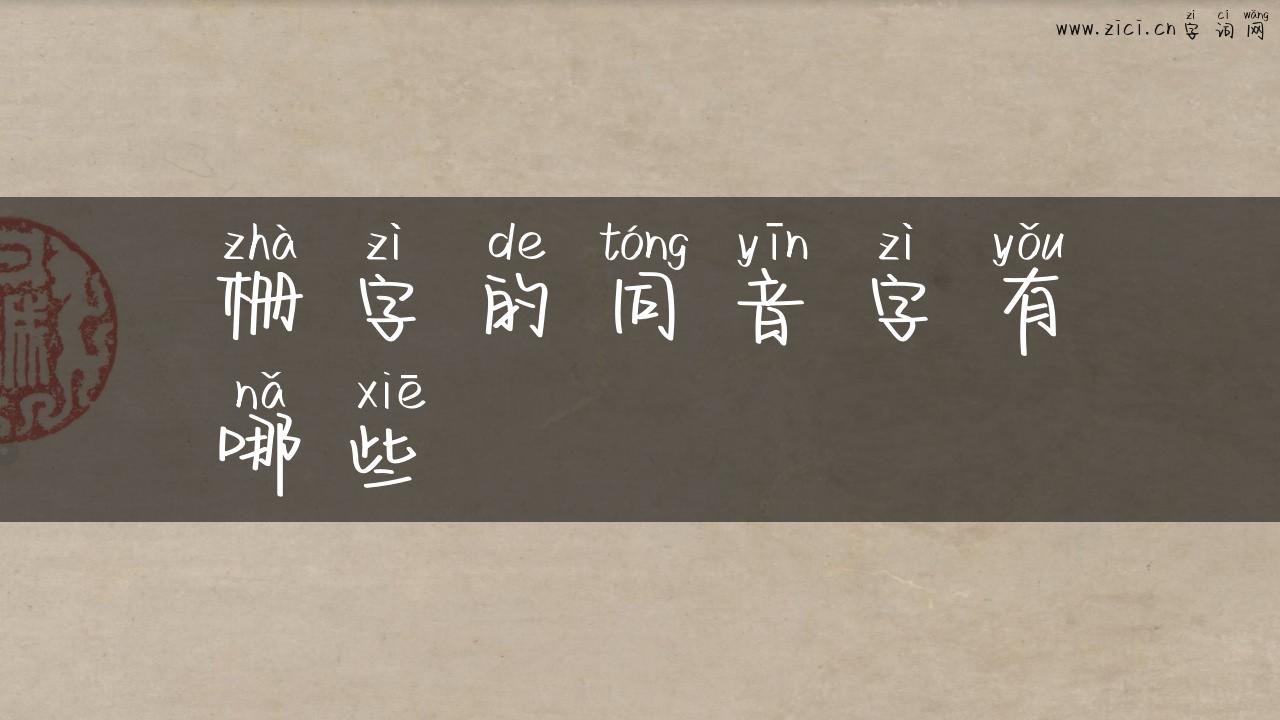 zì cí wǎng
www.zici.cn 字词网
zhà zì de tóng yīn zì yǒu
栅字的同音字有
nǎ xiē
哪些